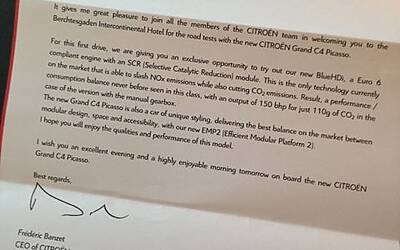 It gives me great pleasure to join all the members of the CITROËN team in welcoming you to the
Berchtesgaden Intercontinental Hotel for the road tests with the new CITROËN Grand C4 Picasso.
For this first drive, we are giving you an exclusive opportunity to try out our new BlueHDi, a Euro 6
compliant engine with an SCR (Selective Catalytic Reduction) module. This is the only technology currently
on the market that is able to slash NOx emissions while also cutting CO₂ emissions. Result, a performance /
consumption balance never before seen in this class, with an output of 150 bhp for just 110g of CO₂ in the
case of the version with the manual gearbox.
The new Grand C4 Picasso is also a car of unique styling, delivering the best balance on the market between
modular design, space and accessibility, with our new EMP2 (Efficient Modular Platform 2).
I hope you will enjoy the qualities and performance of this model.
I wish you an excellent evening and a highly enjoyable morning tomorrow on board the new CITROËN
Grand C4 Picasso.
Best regards,
Frédéric Banzet
CEO of CITROËN